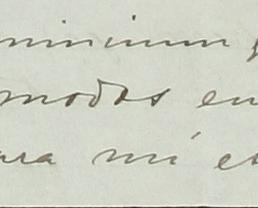 minimum
modos en
ara mi es